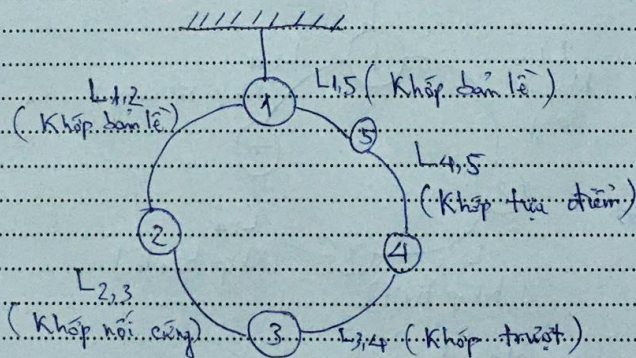 L1,2
(Khớp bản lề)
1
L1,5 (Khớp bản lề)
5
L4,5
(Khớp tựa điểm)
2
4
L2,3
(Khớp nối cứng)
3
L3,4 (Khớp trượt)